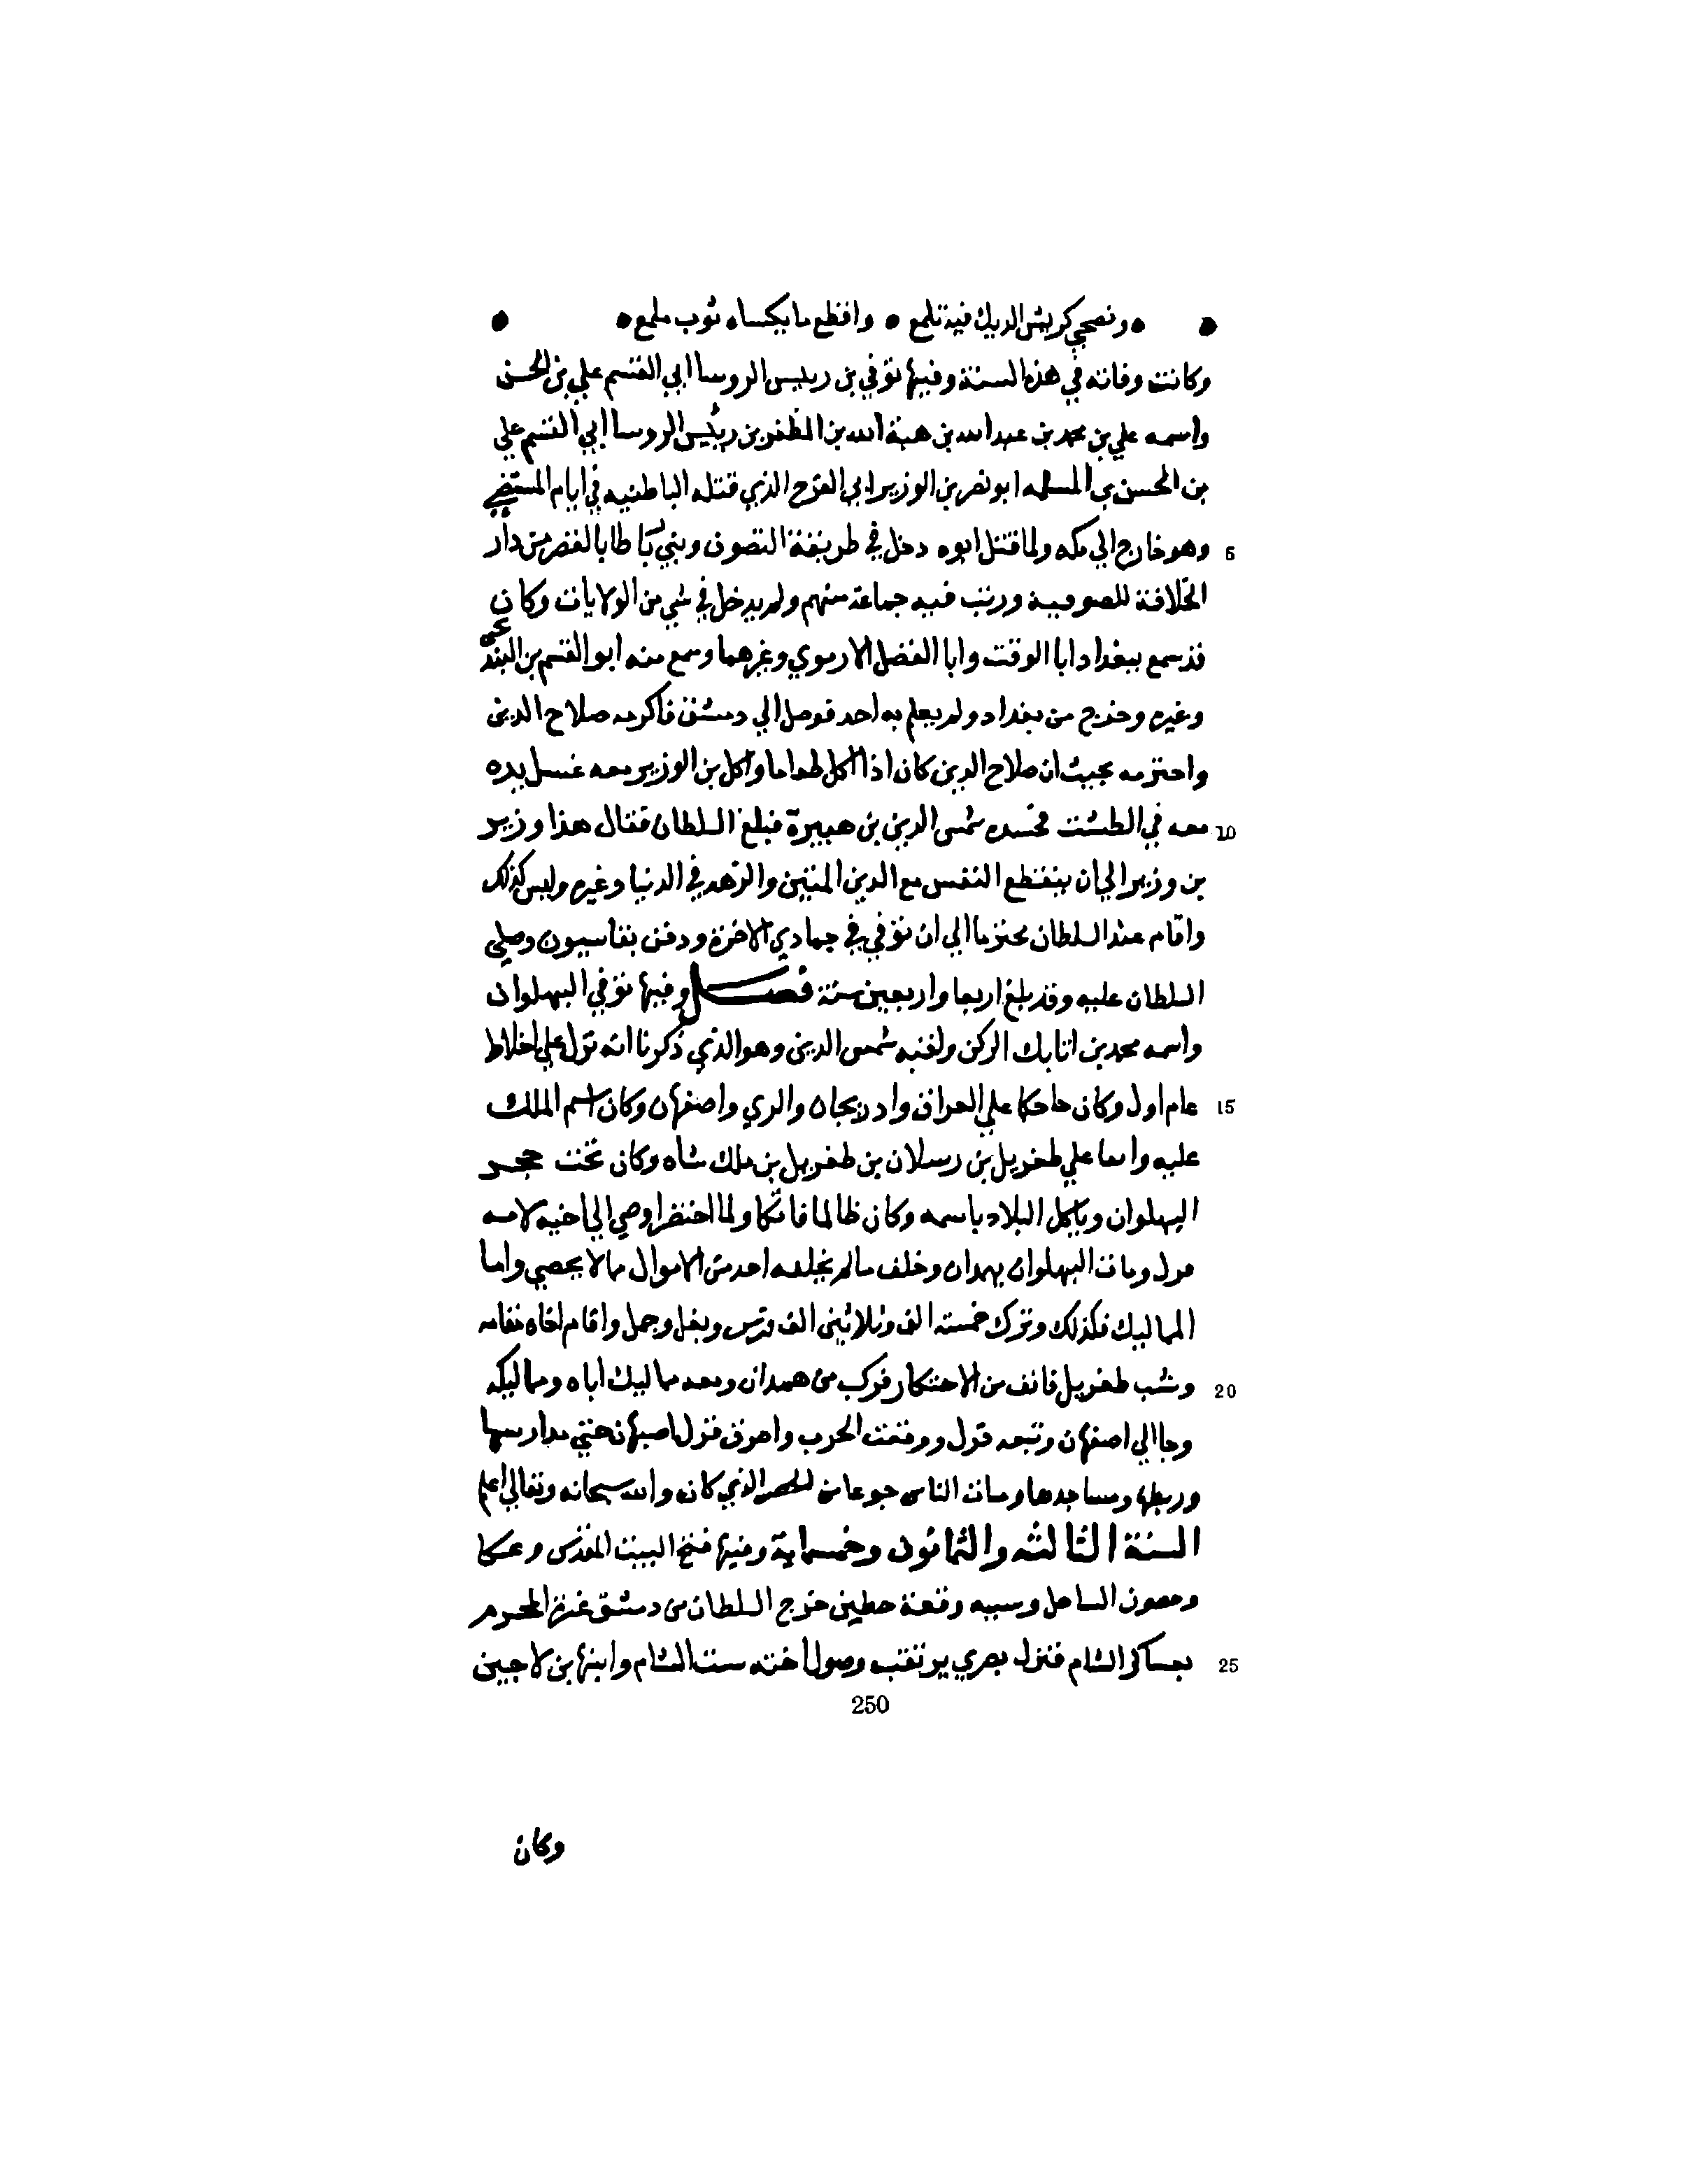 ونصحي كريش الديك فيه تلمع • وافظع ما يكساه ثوب ملمع •
وكانت وفاته في هذه السنة وفيها توفي بن رييس الروسا ابي القسم علي بن الحسن
واسمه علي بن محمد بن عبد الله بن هبة الله بن المظفر بن رئيس الروسا ابي القسم علي
بن الحسن بن المسلمه ابو نصر بن الوزير ابي الفرج الذي قتله الباطنيه في ايام المستضي
5 وهو خارج الي مكه ولما قتل ابوه دخل في طريقة التصوف وبني رباطا بالقصر من دار
الخلافة للصوفية ورتب فيه جماعة منهم ولم يدخل في شي من الولايات وكان
قد سمع ببغداد ابا الوقت وابا الفضل الارموي وغيرهما وسمع منه ابو القسم بن
وغيره وخرج من بغداد ولم يعلم به احد فوصل الي دمشق فاكرمه صلاح الدين
واحترمه بحيث ان صلاح الدين كان اذا اكل طعاما واكل بن الوزير معه غسل يده
10 معه في الطشت فحسده شمس الدين بن هبيرة فبلغ السلطان فقال هذا وزير
بن وزير الي ان ينقطع النفس مع الدين المتين والزهد في الدنيا وغيره وليس كذلك
واقام عند السلطان محترما الي ان توفي في جمادي الاخرة ودفن بقاسيون وصلي
السلطان عليه وقد بلغ اربعا واربعين سنة فصل وفيها توفي البهلوان
واسمه محمد بن اتابك الركن ولقبه شمس الدين وهو الذي ذكرنا انه نزل علي اخلاط
15 عام اول وكان حاكما علي العراق وادربيجان والري واصفهان وكان اسم الملك
عليه واما علي طغريل بن رسلان بن طغريل بن ملك شاه وكان تحت حجر
البهلوان وياكل البلاد باسمه وكان ظالما فاتكا ولما احتضر اوصي الي اخيه لامه
قزل ومات البهلوان بهمدان وخلف ما لم يخلفه احد من الاموال ما لا يحصي واما
المماليك فكذلك وترك خمسة الف وثلاثين الف فرس وبغل وجمل واقام اخاه مقامه
20 وشب طغريل فانف من الاحتكار فركب من همدان ومعه مماليك اباه ومماليكه
وجا الي اصفهان وتبعه قزل ووقعت الحرب واحرق قزل اصبهان حتي مدارسها
وربطها ومساجدها ومات الناس جوعا من الحصر الذي كان والله سبحانه وتعالي اعلم
السنة الثالثه والثمانون وخمسماية وفيها فتح البيت المقدس وعكا
وحصون الساحل وسببه وقعة حطين خرج السلطان من دمشق غرة المحرم
25 بعساكر الشام فنزل بصري يرتقب وصول اخته ست الشام وابنها بن لاجين
250
وكان